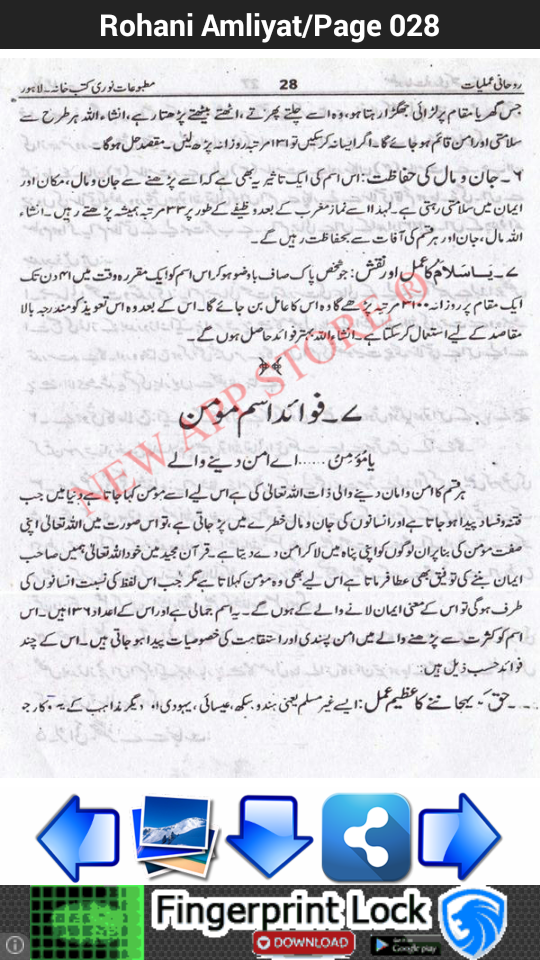 Rohani Amliyat/Page 028
روحانی عملیات 28 مطبوعات نوری کتب خانہ۔ لاہور
جس گھر یا مقام پر لڑائی جھگڑا رہتا ہو، وہ اسے چلتے پھرتے، اٹھتے بیٹھتے پڑھتا رہے، انشاء اللہ ہر طرح سے
سلامتی اور امن قائم ہو جائے گا۔ اگر ایسا نہ کر سکیں تو ۱۳۱ مرتبہ روزانہ پڑھ لیں۔ مقصد حل ہوگا۔
۶۔ جان و مال کی حفاظت: اس اسم کی ایک تاثیر یہ بھی ہے کہ اسے پڑھنے سے جان و مال، مکان اور
ایمان میں سلامتی رہتی ہے۔ لہٰذا اسے نماز مغرب کے بعد وظیفے کے طور پر ۳۳ مرتبہ ہمیشہ پڑھتے رہیں۔ انشاء
اللہ مال، جان اور ہر قسم کی آفات سے بحفاظت رہیں گے۔
۷۔ یا سلام کا عمل اور نقش: جو شخص پاک صاف باوضو ہو کر اس اسم کو ایک مقررہ وقت میں ۴۱ دن تک
ایک مقام پر روزانہ مرتبہ پڑھے گا وہ اس کا عامل بن جائے گا۔ اس کے بعد وہ اس تعویذ کو مندرجہ بالا
مقاصد کے لیے استعمال کر سکتا ہے۔ انشاء اللہ بہتر فوائد حاصل ہوں گے۔
NEW APP STORE ®
۷۔ فوائد اسم مؤمن
یا مُؤْمِنُ ...... اے امن دینے والے
ہر قسم کا امن و امان دینے والی ذات اللہ تعالیٰ کی ہے اس لیے اسے مؤمن کہا جاتا ہے دنیا میں جب
فتنہ و فساد پیدا ہو جاتا ہے اور انسانوں کی جان و مال خطرے میں پڑ جاتی ہے، تو اس صورت میں اللہ تعالیٰ اپنی
صفت مؤمن کی بنا پر ان لوگوں کو اپنی پناہ میں لا کر امن دے دیتا ہے۔ قرآن مجید میں خود اللہ تعالیٰ ہمیں صاحب
ایمان بننے کی توفیق بھی عطا فرماتا ہے اس لیے بھی وہ مؤمن کہلاتا ہے مگر جب اس لفظ کی نسبت انسانوں کی
طرف ہوگی تو اس کے معنی ایمان لانے والے کے ہوں گے۔ یہ اسم جمالی ہے اور اس کے اعداد ۱۳۶ ہیں۔ اس
اسم کو کثرت سے پڑھنے والے میں امن پسندی اور استقامت کی خصوصیات پیدا ہو جاتی ہیں۔ اس کے چند
فوائد حسب ذیل ہیں:
حق کو پہچاننے کا عظیم عمل: ایسے غیر مسلم یعنی ہندو، سکھ، عیسائی، یہودی اور دیگر مذاہب کے
Fingerprint Lock
DOWNLOAD
Google play